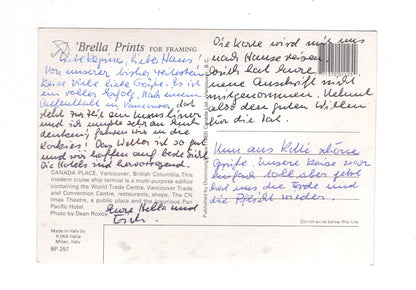 'Brella Prints FOR FRAMING
Liebe Regine, lieber Hans!
Von unserer bisher
Reise viele liebe Grüße. Es ist
ein voller Erfolg. Nach einem
Aufenthalt in Vancouver, dort
steht zur Zeit ein
und ich mußte sehr an
denken, fahren wir in die
Rockies! Das Wetter ist so gut
und wir hoffen auf
Die Hotels sind hervorragend.
CANADA PLACE, Vancouver, British Columbia. This
modern cruise ship terminal is a multi-purpose edifice
containing the World Trade Centre, Vancouver Trade
and Convention Centre, restaurants, shops, The CN
Imax Theatre, a public plaza and the luxurious Pan
Pacific Hotel.
Photo by Dean Roxby
Eure Hella und
Erich.
Made in Italy by
KINA Italia
Milan, Italy
BP-257
Die Karte wird mit uns
nach Hause reisen.
Erich hat Eure
neue Anschrift nicht
mitgenommen. Nehmt
also den guten Willen
für die Tat.
Nun aus Köln schöne
Grüße. Unsere Reise war
einfach toll, aber jetzt
hat uns die Erde und
die Pflicht wieder.
Do not write below this line